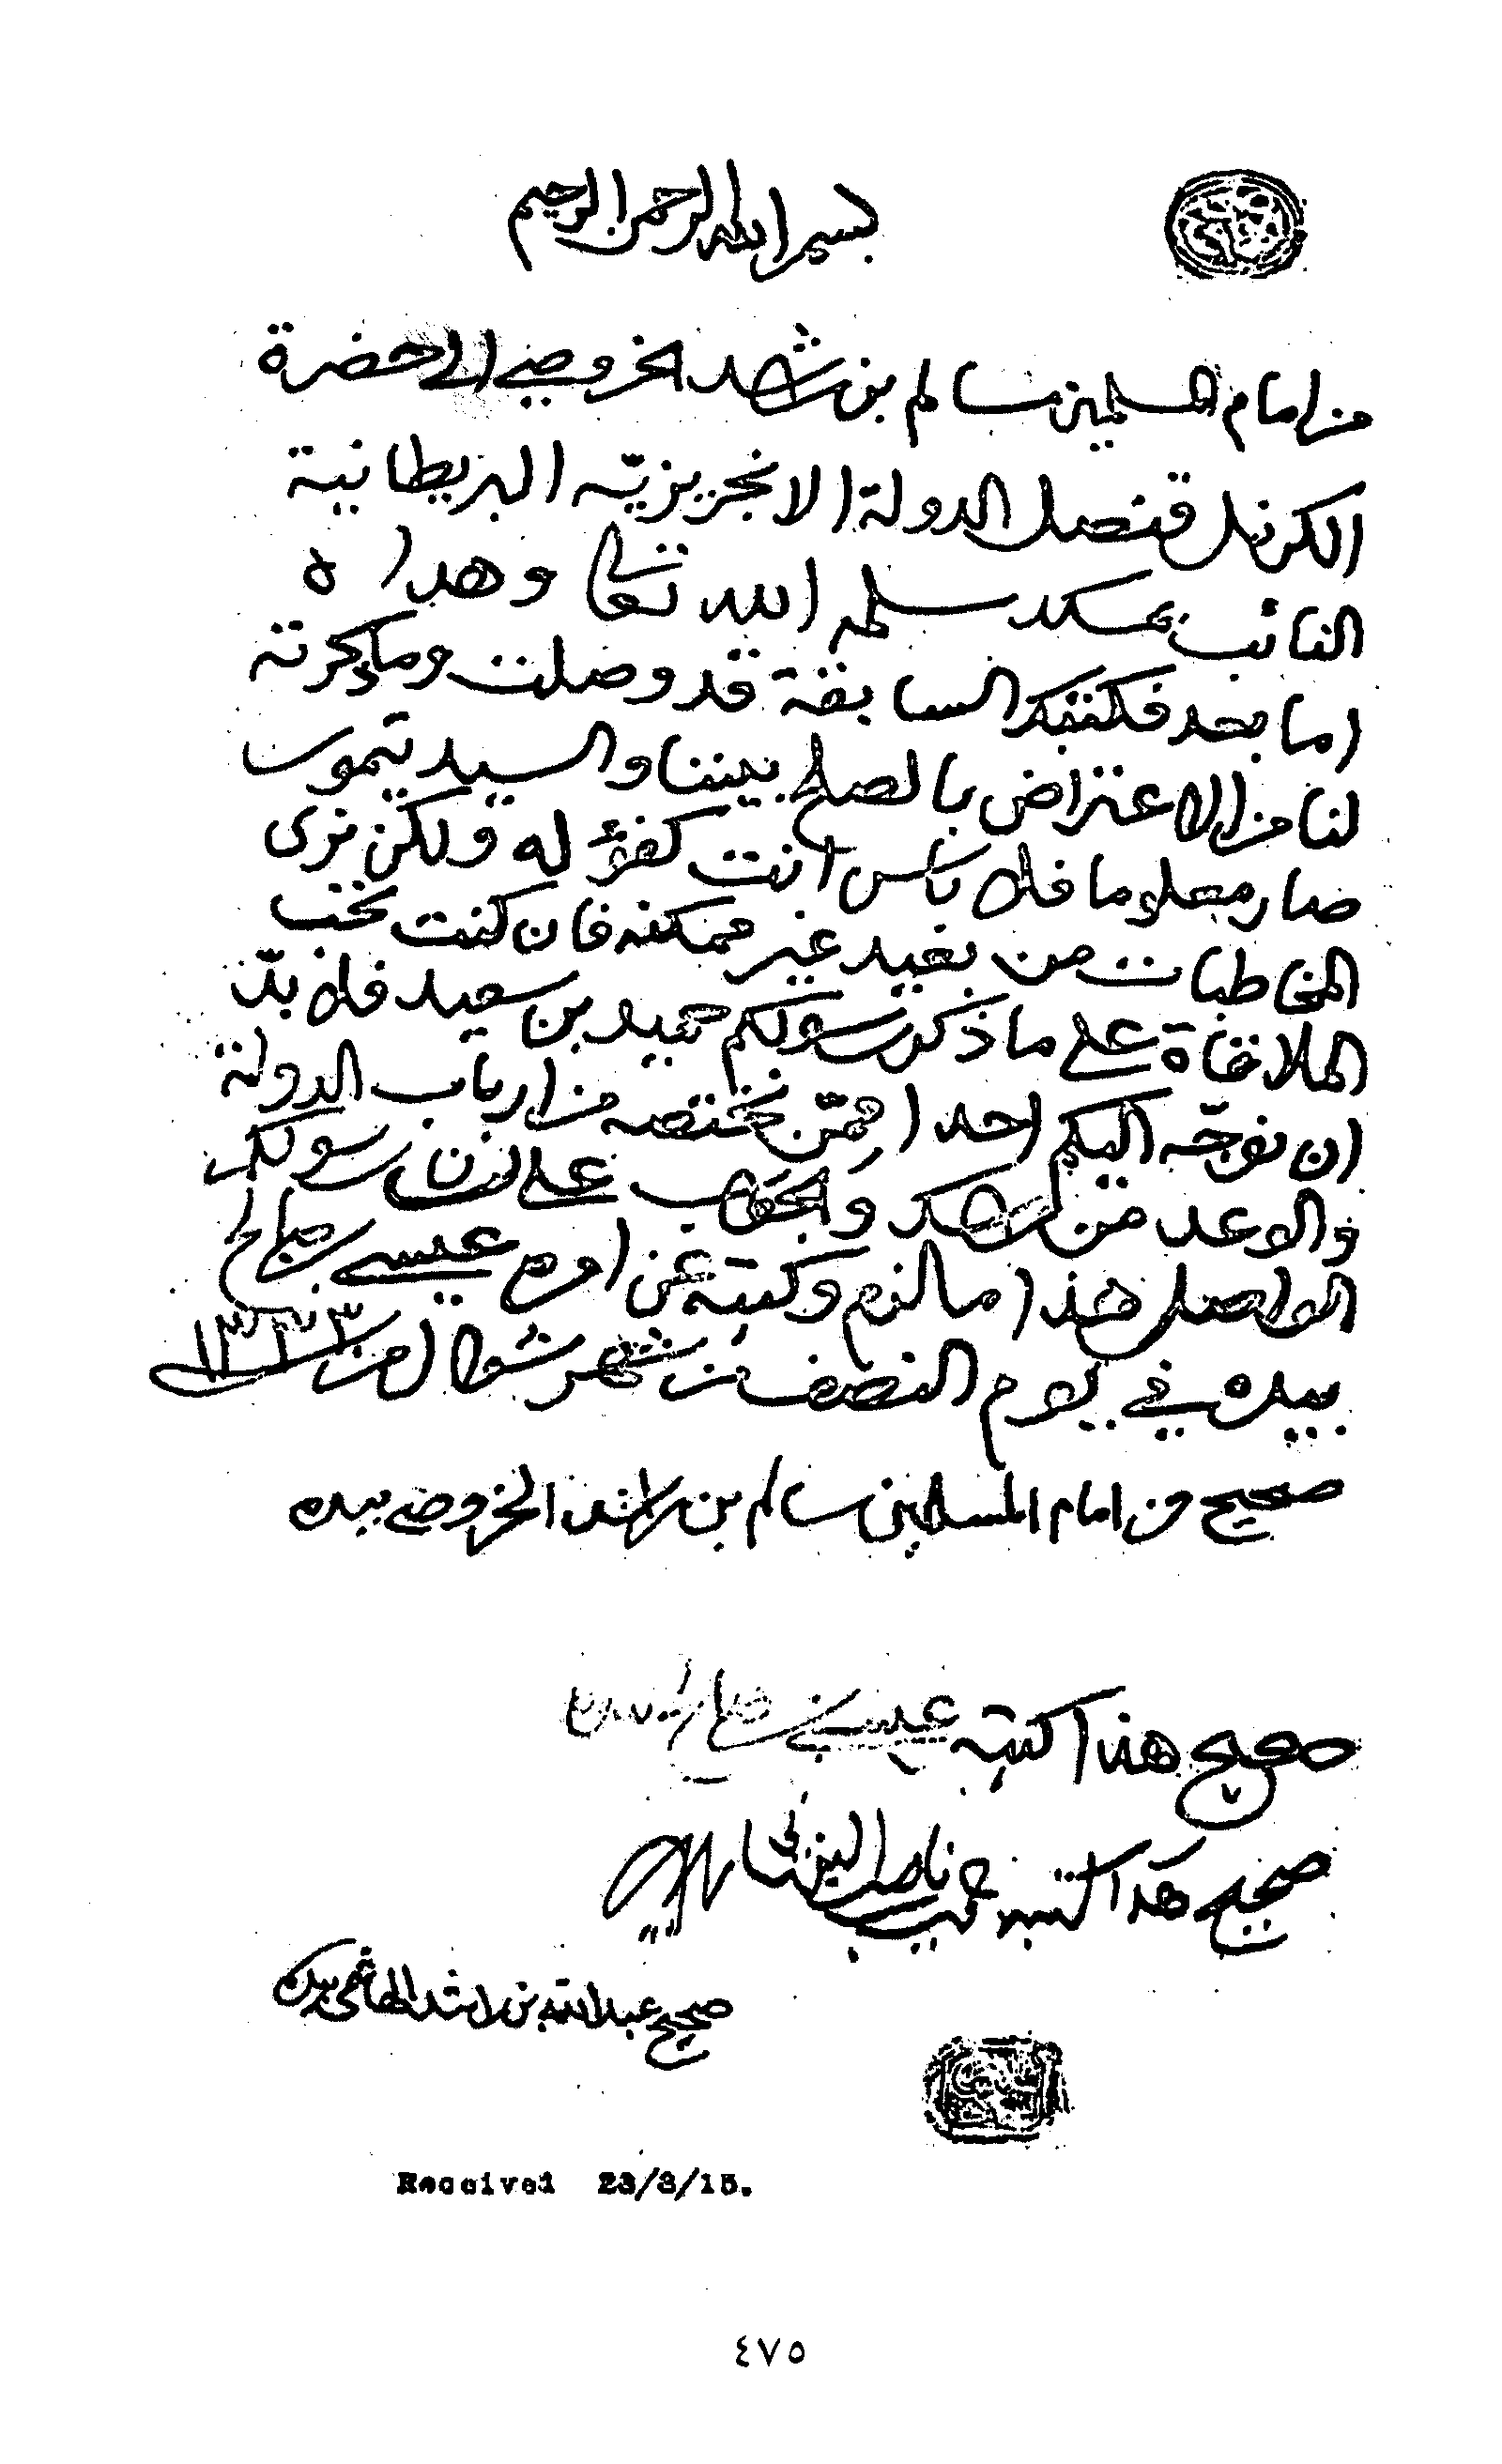 بسم الله الرحمن الرحيم
من امام المسلمين سالم بن راشد الخروصي الى حضرة
الكرنل قنصل الدولة الانجريزيّه البريطانية
النائب بمسكد سلمه الله تعالى وهداه
اما بعد فكتبك السابقة قد وصلت وما ذكرته
لنا من الاعتراض بالصلح بيننا والسيد تيمور
صار معلوما فلا بأس انت كفؤ له ولكن نرى
المخاطبات من بعيد غير ممكنه فان كنت تحب
الملاقاة على ما ذكر رسولكم حميد بن سعيد فلا بدّ
ان نوجّه اليكم احدا ممّن نختصه من ارباب الدولة
والوعد من السد والجواب على لسان رسولك
الواصل هذا ما لزم وكتبه عن امره عيسى بن صالح
بيده في يوم النصف من شهر شوال من سنة ١٣٣٣
صحيح من امام المسلمين سالم بن راشد الخروصي بيده
صحيح هذا كتبه عيسى بن صالح بيده
صحيح هذا كتبه
صحيح عبدالله بن راشد الهاشمي بيده
Received 23/8/15.
٤٧٥